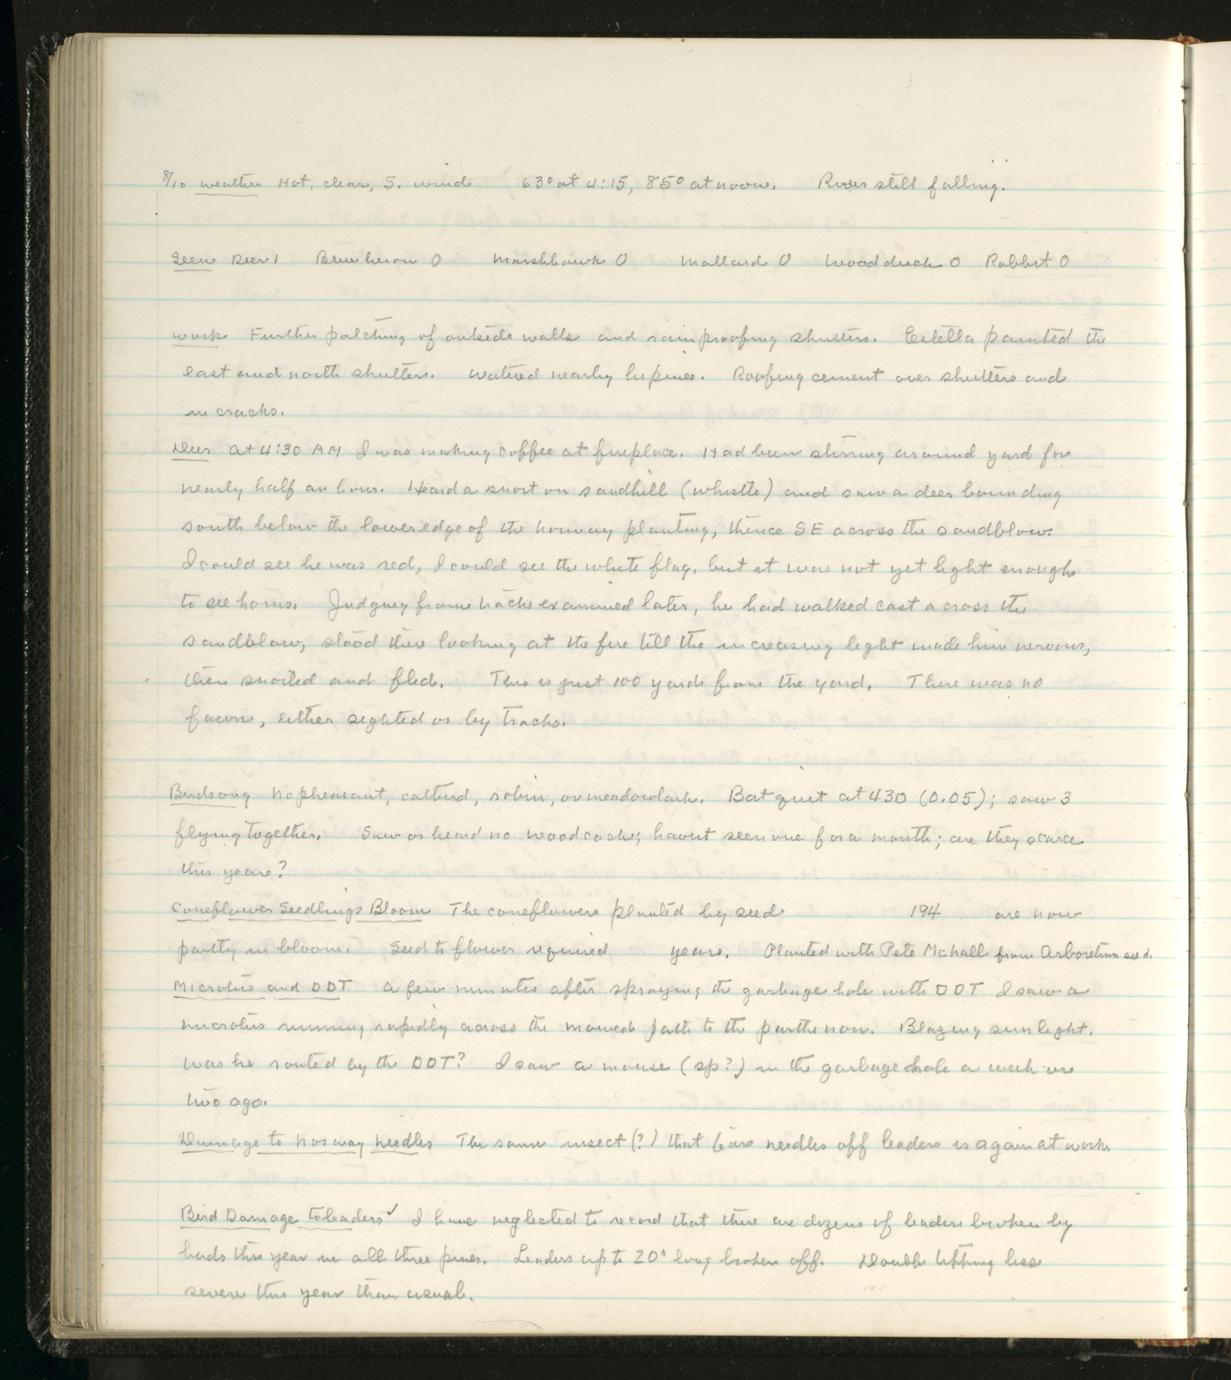 8/10 weather Hot, clear, S. wind. 63° at 4:15, 85° at noon. River still falling.
Seen Deer 1 Blue heron 0 Marshhawk 0 Mallard 0 Wood duck 0 Rabbit 0
work Further patching of outside walls and rainproofing shutters. Estella painted the
east and north shutters. Watered nearby lupines. Roofing cement over shutters and
in cracks.
Deer At 4:30 AM I was making coffee at fireplace. Had been stirring around yard for
nearly half an hour. Heard a snort on sandhill (whistle) and saw a deer bounding
south below the lower edge of the norway planting, thence SE across the sandblow.
I could see he was red, I could see the white flag, but it was not yet light enough
to see horns. Judging from tracks examined later, he had walked east across the
sandblow, stood there looking at the fire till the increasing light made him nervous,
then snorted and fled. This is just 100 yards from the yard. There was no
fawn, either sighted or by tracks.
Birdsong No pheasant, catbird, robin, or meadowlark. Bat quit at 430 (0.05); saw 3
flying together. Saw or heard no woodcocks; havnt seen one for a month; are they scarce
this year?
Coneflower Seedlings Bloom The coneflowers planted by seed 194 are now
partly in bloom. Seed to flower required years. Planted with Pete McNall from Arboretum seed.
Microtus and DDT A few minutes after spraying the garbage hole with DDT I saw a
microtus running rapidly across the mowed path to the parthenon. Blazing sunlight.
Was he routed by the DDT? I saw a mouse (sp?) in the garbage hole a week or
two ago.
Damage to Norway needles The same insect (?) that bare needles off leaders is again at work.
Bird Damage to leaders ✓ I have neglected to record that there are dozens of leaders broken by
birds this year in all three pines. Leaders up to 20" long broken off. Double tipping less
severe this year than usual.